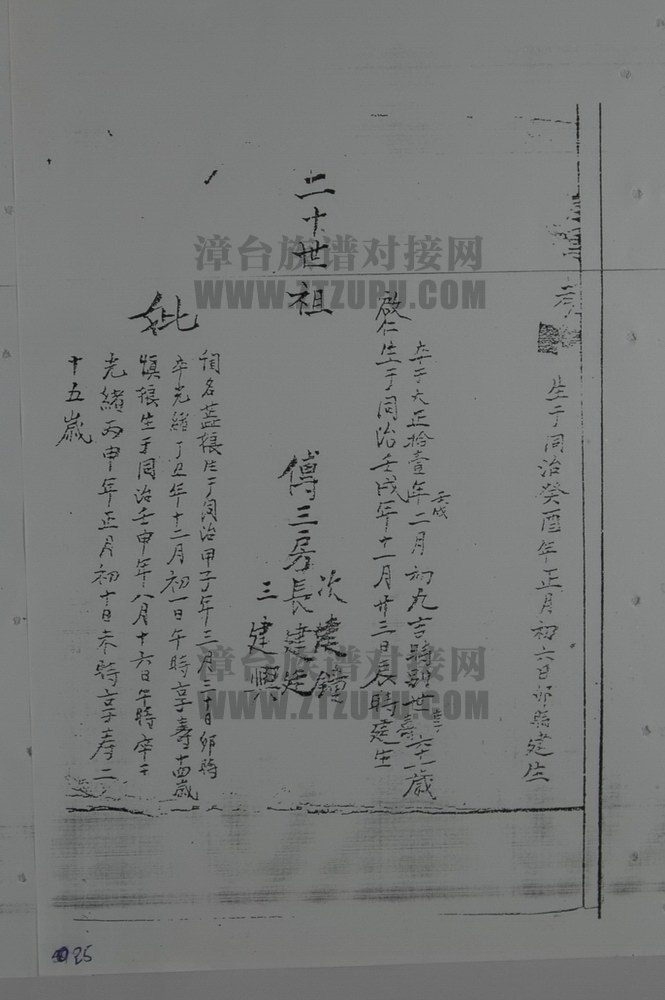 生于同治癸酉年正月初六日卯時建生
壬戌
卒于大正拾壹年二月初九吉時別世享壽六十一歲
啟仁生于同治壬戌年十一月廿三日辰時建生
二十世祖
傳三房長建廷
次建鐘
三建興
妣
閨名荔娘生于同治甲子年三月三十日卯時
卒光緒丁丑年十二月初一日午時享壽十四歲
慎娘生于同治壬申年八月十六日午時卒于
光緒丙申年正月初十日未時享壽二
十五歲
漳台族谱对接网
WWW.ZTZUPU.COM
漳台族谱对接网
WWW.ZTZUPU.COM
25